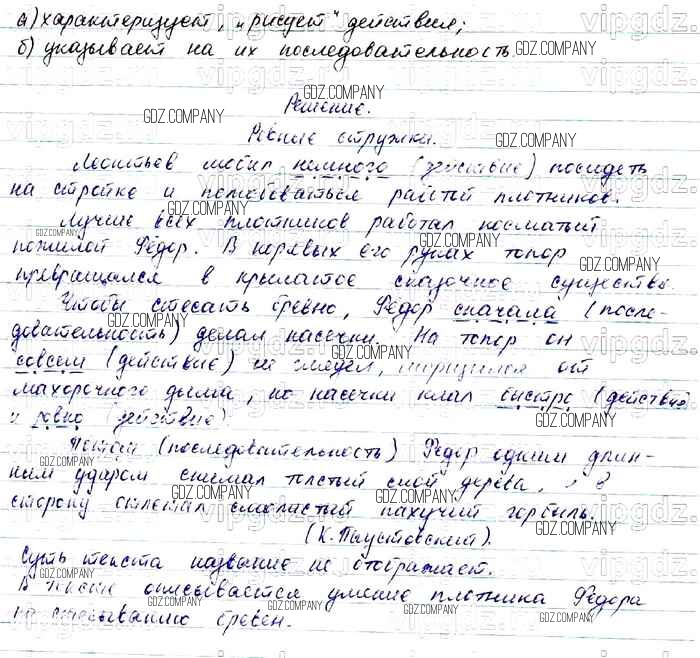 а) характеризует, „рисует" действия;
б) указывает на их последовательность.
Решение.
Ровные стружки.
Леонтьев любил немного (действие) посидеть
на стройке и полюбоваться работой плотников.
Лучше всех плотников работал косматый
пожилой Фёдор. В корявых его руках топор
превращался в крылатое сказочное существо.
Чтобы стесать бревно, Фёдор сначала (после-
довательность) делал насечки. На топор он
совсем (действие) не глядел, морщился от
махорочного дыма, но насечки клал быстро (действие)
и ровно (действие).
Потом (последовательность) Фёдор одним длин-
ным ударом снимал толстый слой дерева, в
сторону отлетал слоистый пахучий горбыль.
(К. Паустовский).
Суть текста название не отображает.
В тексте описывается умение плотника Фёдора
по тёсыванию бревен.